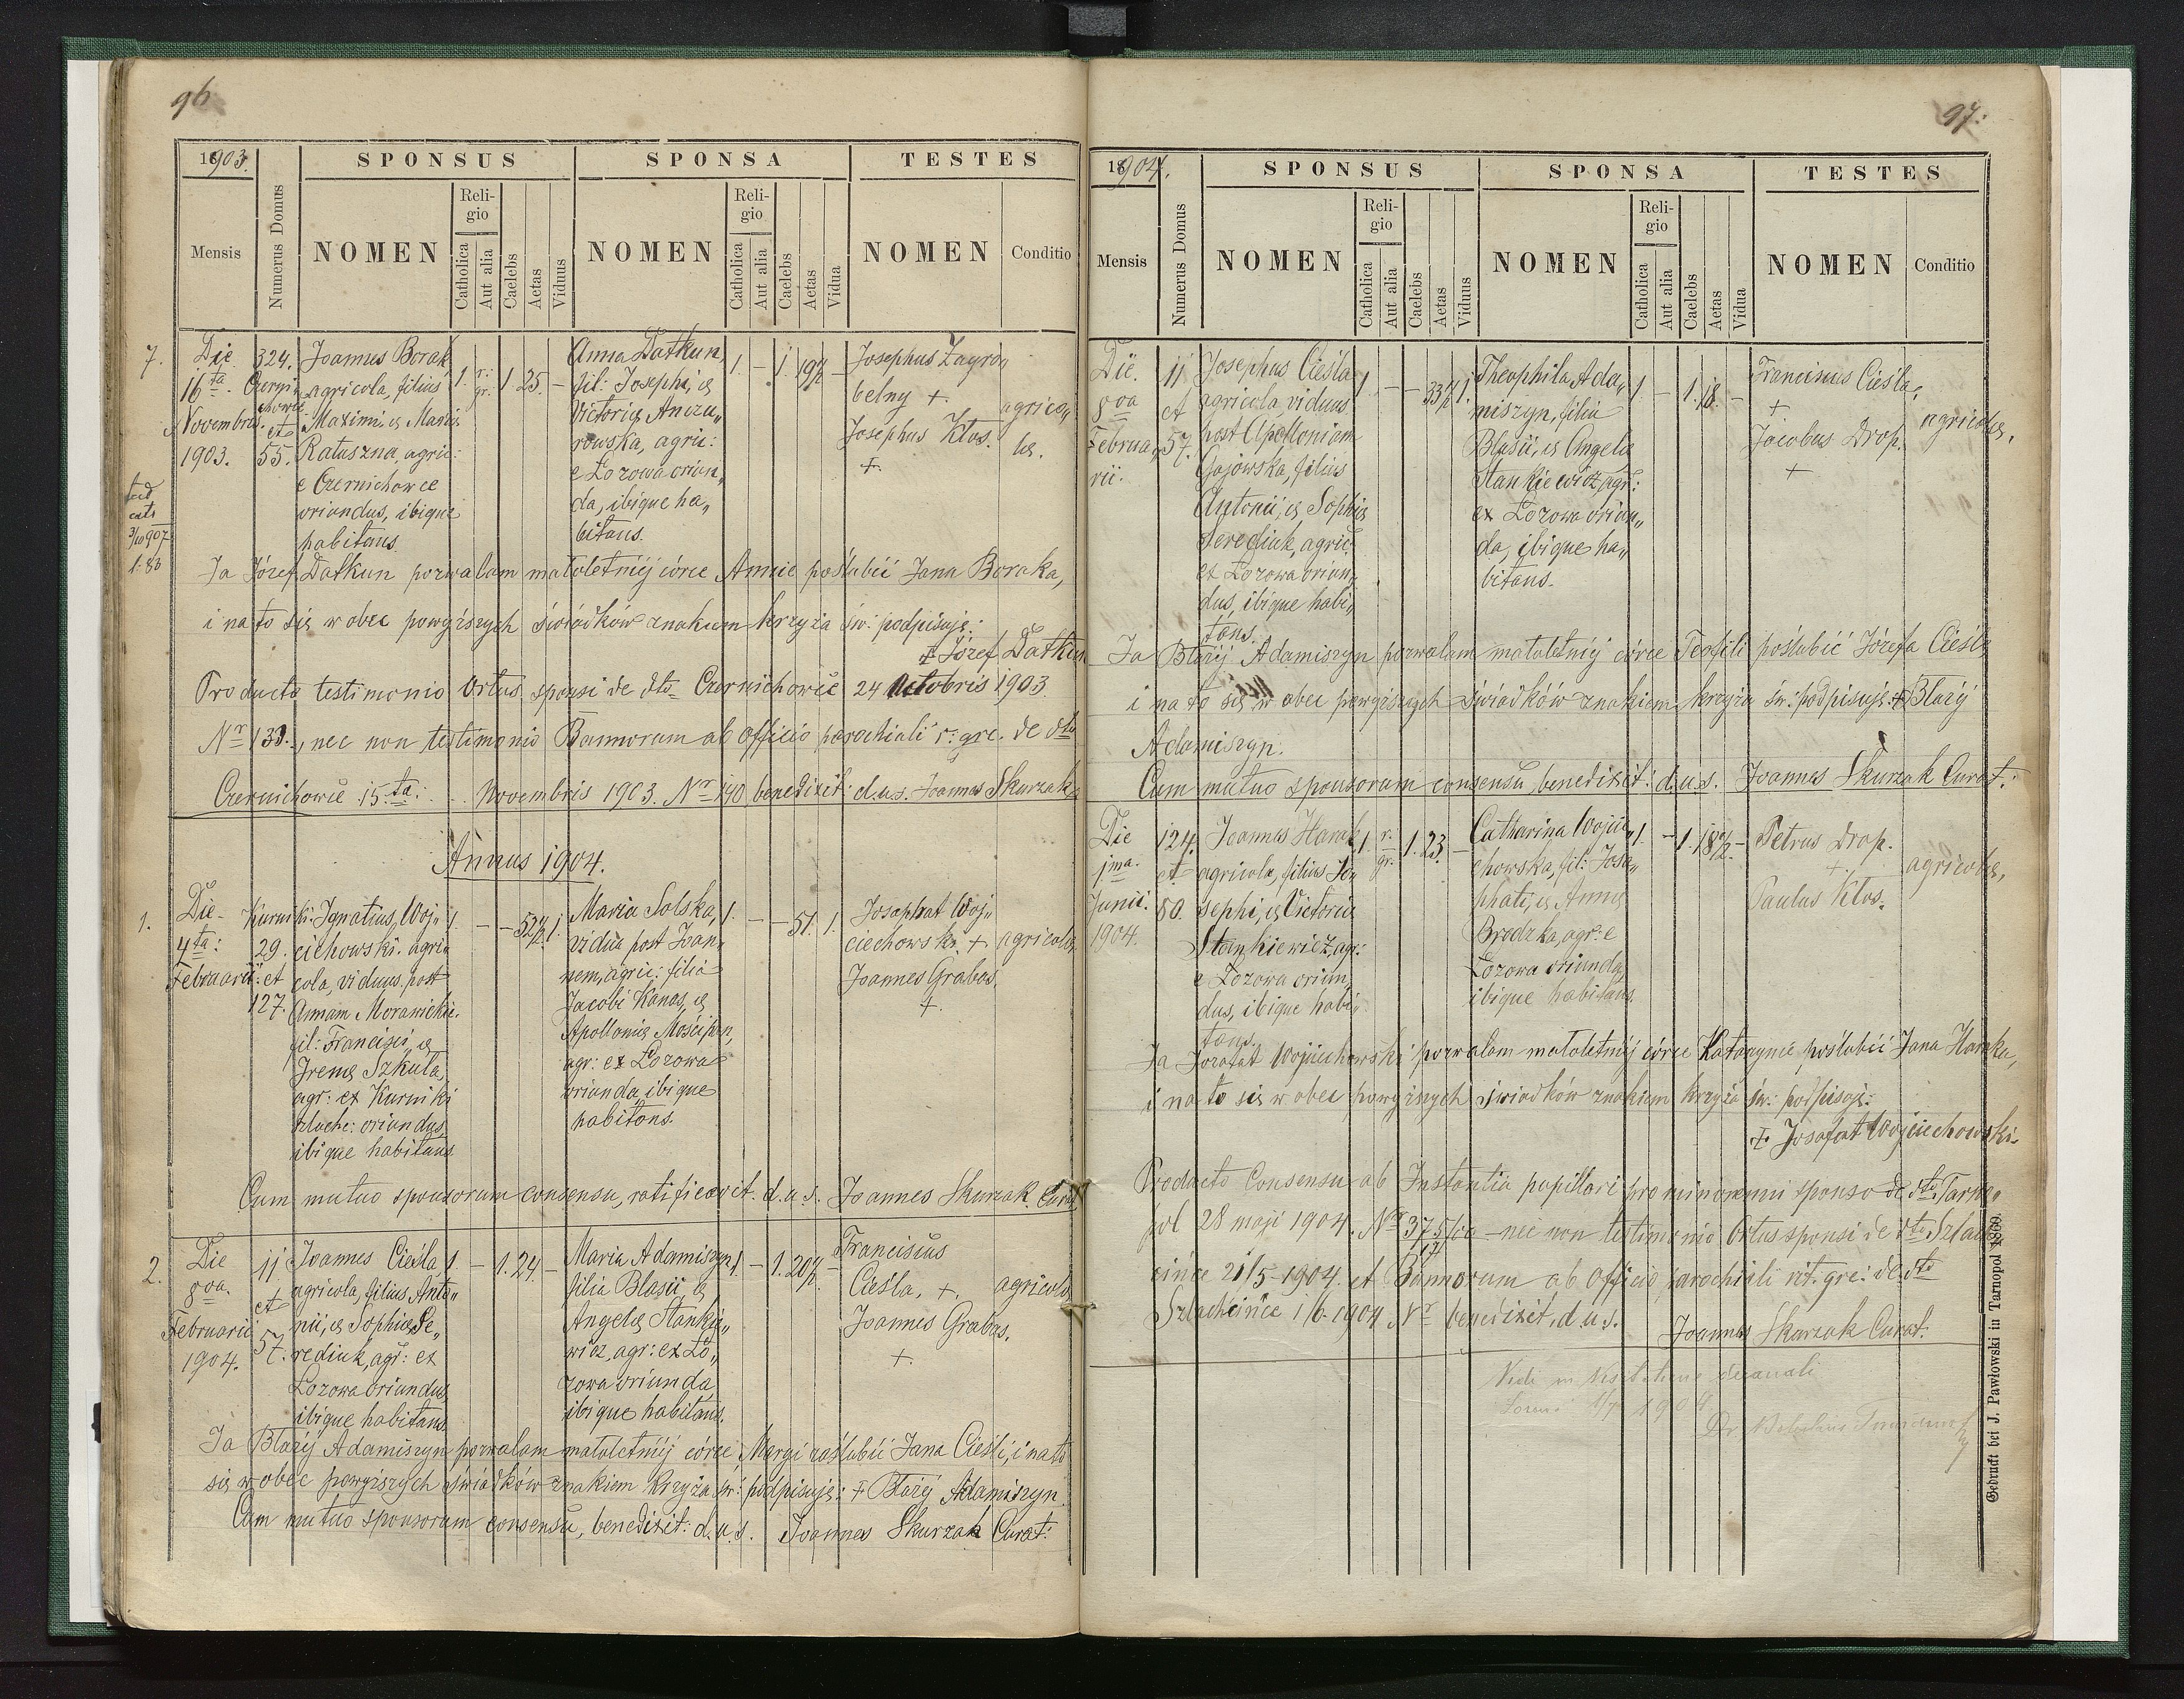 96
1903.
SPONSUS
SPONSA
TESTES
Mensis
Numerus Domus
NOMEN
Religio
Catholica
Aut alia
Caelebs
Aetas
Viduus
NOMEN
Religio
Catholica
Aut alia
Caelebs
Aetas
Vidua
NOMEN
Conditio
7.
Die
16ta
Novembris
1903.
324.
Czerni
chowce
et
55.
Joannes Borak
agricola, filius
Maximi, et Mariæ
Ratuszna agric:
e Czernichowce
oriundus, ibique
habitans.
1. r. gr. 1 25 –
Anna Datkun,
fil: Josephi, et
Victoriæ Anczu„
rowska, agric:
e Łozowa oriun„
da, ibique ha„
bitans.
1. – 1. 19½ –
Josephus Zagro„
belny +.
Josephus Kłos.
+.
agrico„
læ.
3/10 907
1.83
Ja Józef Datkun pozwalam małoletniéj córce Annie poślubić Jana Boraka,
i na to się w obec powyższych świadków znakiem krzyża św: podpisuję:
+ Józef Datkun
Producto testimonio Ortus sponsi de dto Czernichowce 24 Octobris 1903
Nr 133., nec non testimonio Bannorum ab Officio parochiali r: grc. de dto
Czernichowce 15ta: Novembris 1903. Nr 140 benedixit: d.u.s. Joannes Skurzak
Annus 1904.
1.
Die
4ta:
Februarii
Kurniki
29.
et
127.
Ignatius Woj„
ciechowski. agri„
cola, viduus post
Annam Morawicki.
fil: Francisci, et
Irenæ Szkuła,
agr: ex Kurniki
szlache: oriundus
ibique habitans
1. – – 52½ 1.
Maria Solska,
vidua post Joan„
nem, agric: filia
Jacobi Kanas, et
Apolloniæ Mościpan,
agr: ex Łozowa
orianda, ibique
habitans.
1. – – 51. 1.
Josaphat Woj„
ciechowski. +
Joannes Grabas
+.
agricolæ
Cum mutuo sponsorum consensu, ratificavit. d.u.s. Joannes Skurzak. Curat
2.
Die
8va.
Februarii
1904.
11
et
57.
Joannes Cieśla
agricola, filius Anto„
nii, et Sophiæ Se„
rediuk, agr: ex
Łozowa oriundus
ibique habitans
1 – 1. 24. –
Maria Adamiszyn
filia Blasii, et
Angelæ Stankie„
wicz, agr: ex Ło„
zowa oriunda
ibique habitans.
1. – 1. 20½ –
Franciscus
Cieśla, +.
Joannes Grabas.
+.
agricolæ
Ja Błażéj Adamiszyn pozwalam małoletniéj córce Maryi zaślubić Jana Cieśli, i na to
się w obec powyższych świadków znakiem krzyża św: podpisuję: + Błażéj Adamiszyn
Cum mutuo sponsorum consensu, benedixit: d.u.s. Joannes Skurzak Curat:
97.
1904.
SPONSUS
SPONSA
TESTES
Mensis
Numerus Domus
NOMEN
Religio
Catholica
Aut alia
Caelebs
Aetas
Viduus
NOMEN
Religio
Catholica
Aut alia
Caelebs
Aetas
Vidua
NOMEN
Conditio
Die.
8va
Februa„
rii.
11
et
57.
Josephus Cieśla
agricola, viduus
post Apolloniam
Gajowska, filius
Antonii, et Sophiæ
Serediuk, agric:
ex Łozowa oriun„
dus, ibique habi„
tans.
1 – – 33½ 1.
Theophila Ada„
miszyn, filia
Blasii, et Angelæ
Stankiewicz, agr:
ex Łozowa oriun„
da, ibique ha„
bitans.
1. – 1. 18. –
Franciscus Cieśla,
+
Jacobus Drop.
+
agricolæ,
Ja Błażéj Adamiszyn pozwalam małoletniéj córce Teofili poślubić Józefa Cieśla
i na to się w obec powyższych świadków znakiem krzyża św: podpisuję: + Błażéj
Adamiszyn.
Cum mutuo sponsorum consensu, benedixit: d.u.s. Joannes Skurzak Curat.:
Die
1ma.
Junii.
1904.
124.
et
80.
Joannes Harak
agricola, filius Jo„
sephi, et Victoriæ
Stankiewicz, agr:
e Łozowa oriun„
dus, ibique habi„
tans.
1. r. gr. 1. 23. –
Catharina Wojcie„
chowska, fil: Josa„
phati, et Annæ
Brodzka, agr: e
Łozowa oriunda,
ibique habitans.
1. – 1. 18½ –
Petrus Drop.
+.
Paulus Kłos.
agricolæ,
Ja Jozafat Wojciechowski pozwalam małoletniéj córce Katarzynie poślubić Jana Haraka,
i na to się w obec powyższych świadków znakiem krzyża św: podpisuję:
+ Josafat Wojciechowski.
Producto Consensu ab Instantia pupillari pro minorenni sponso de dto Tarno„
pol 28 maji 1904. Nr 375/17 – nec non testimonio Ortus sponsi de dto Szlach„
cińce 21/5 1904. et Bannorum ab Officio parochiali rit. grc: de dto
Szlachcińce 1/6. 1904 Nr benedixit. d u s.
Joannes Skurzak Curat:
Vidi in Visitatione decanali
1904
Gedruckt bei J. Pawłowski in Tarnopol 1860.